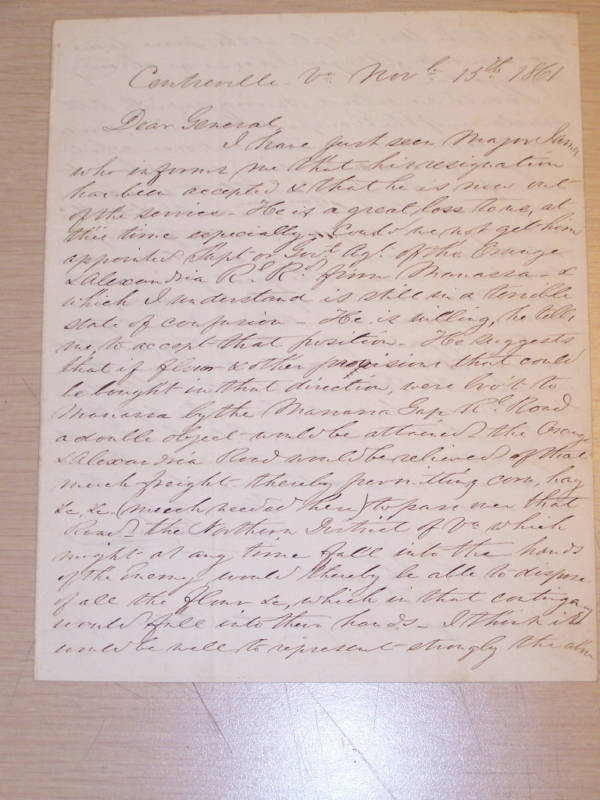 Centreville Va Novbr 15th 1861
Dear General,
I have just seen Major James
who informs me that his resignation
has been accepted & that he is now out
of the service. He is a great loss to us, at
this time especially. Could we not get him
appointed Supt or Govt Agt of the Orange
& Alexandria Rl Rd from Manassa - &
which I understand is still in a terrible
state of confusion - He is willing, he tells
me, to accept that position - He suggests
that if flour & other provisions that could
be bought in that direction, were bro't to
Manassa by the Manassa Gap Rl Road
a double object would be attained, the Orange
& Alexandria Road would be relieved of that
much freight - thereby permitting corn, hay
&c, &c. (much needed here) to pass over that
Road - the Northern District of Va which
might at any time fall into the hands
of the Enemy, would thereby be able to dispose
of all the flour &c, which in that contingency
would fall into their hands - I think it
would be well to represent strongly the above